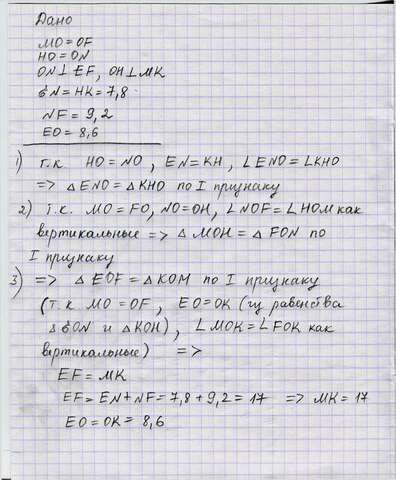 Дано
MO = OF
HO = ON
ON ⊥ EF, OH ⊥ MK
EN = HK = 7,8
NF = 9,2
EO = 8,6
1) т.к HO = NO, EN = KH, ∠ENO = ∠KHO
=> △ENO = △KHO по I признаку
2) т.к. MO = FO, NO = OH, ∠NOF = ∠HOM как
вертикальные => △MOH = △FON по
I признаку
3) => △EOF = △KOM по I признаку
(т.к MO = OF, EO = OK (из равенства
△EON и △KOH), ∠MOK = ∠FOK как
вертикальные) =>
EF = MK
EF = EN + NF = 7,8 + 9,2 = 17 => MK = 17
EO = OK = 8,6